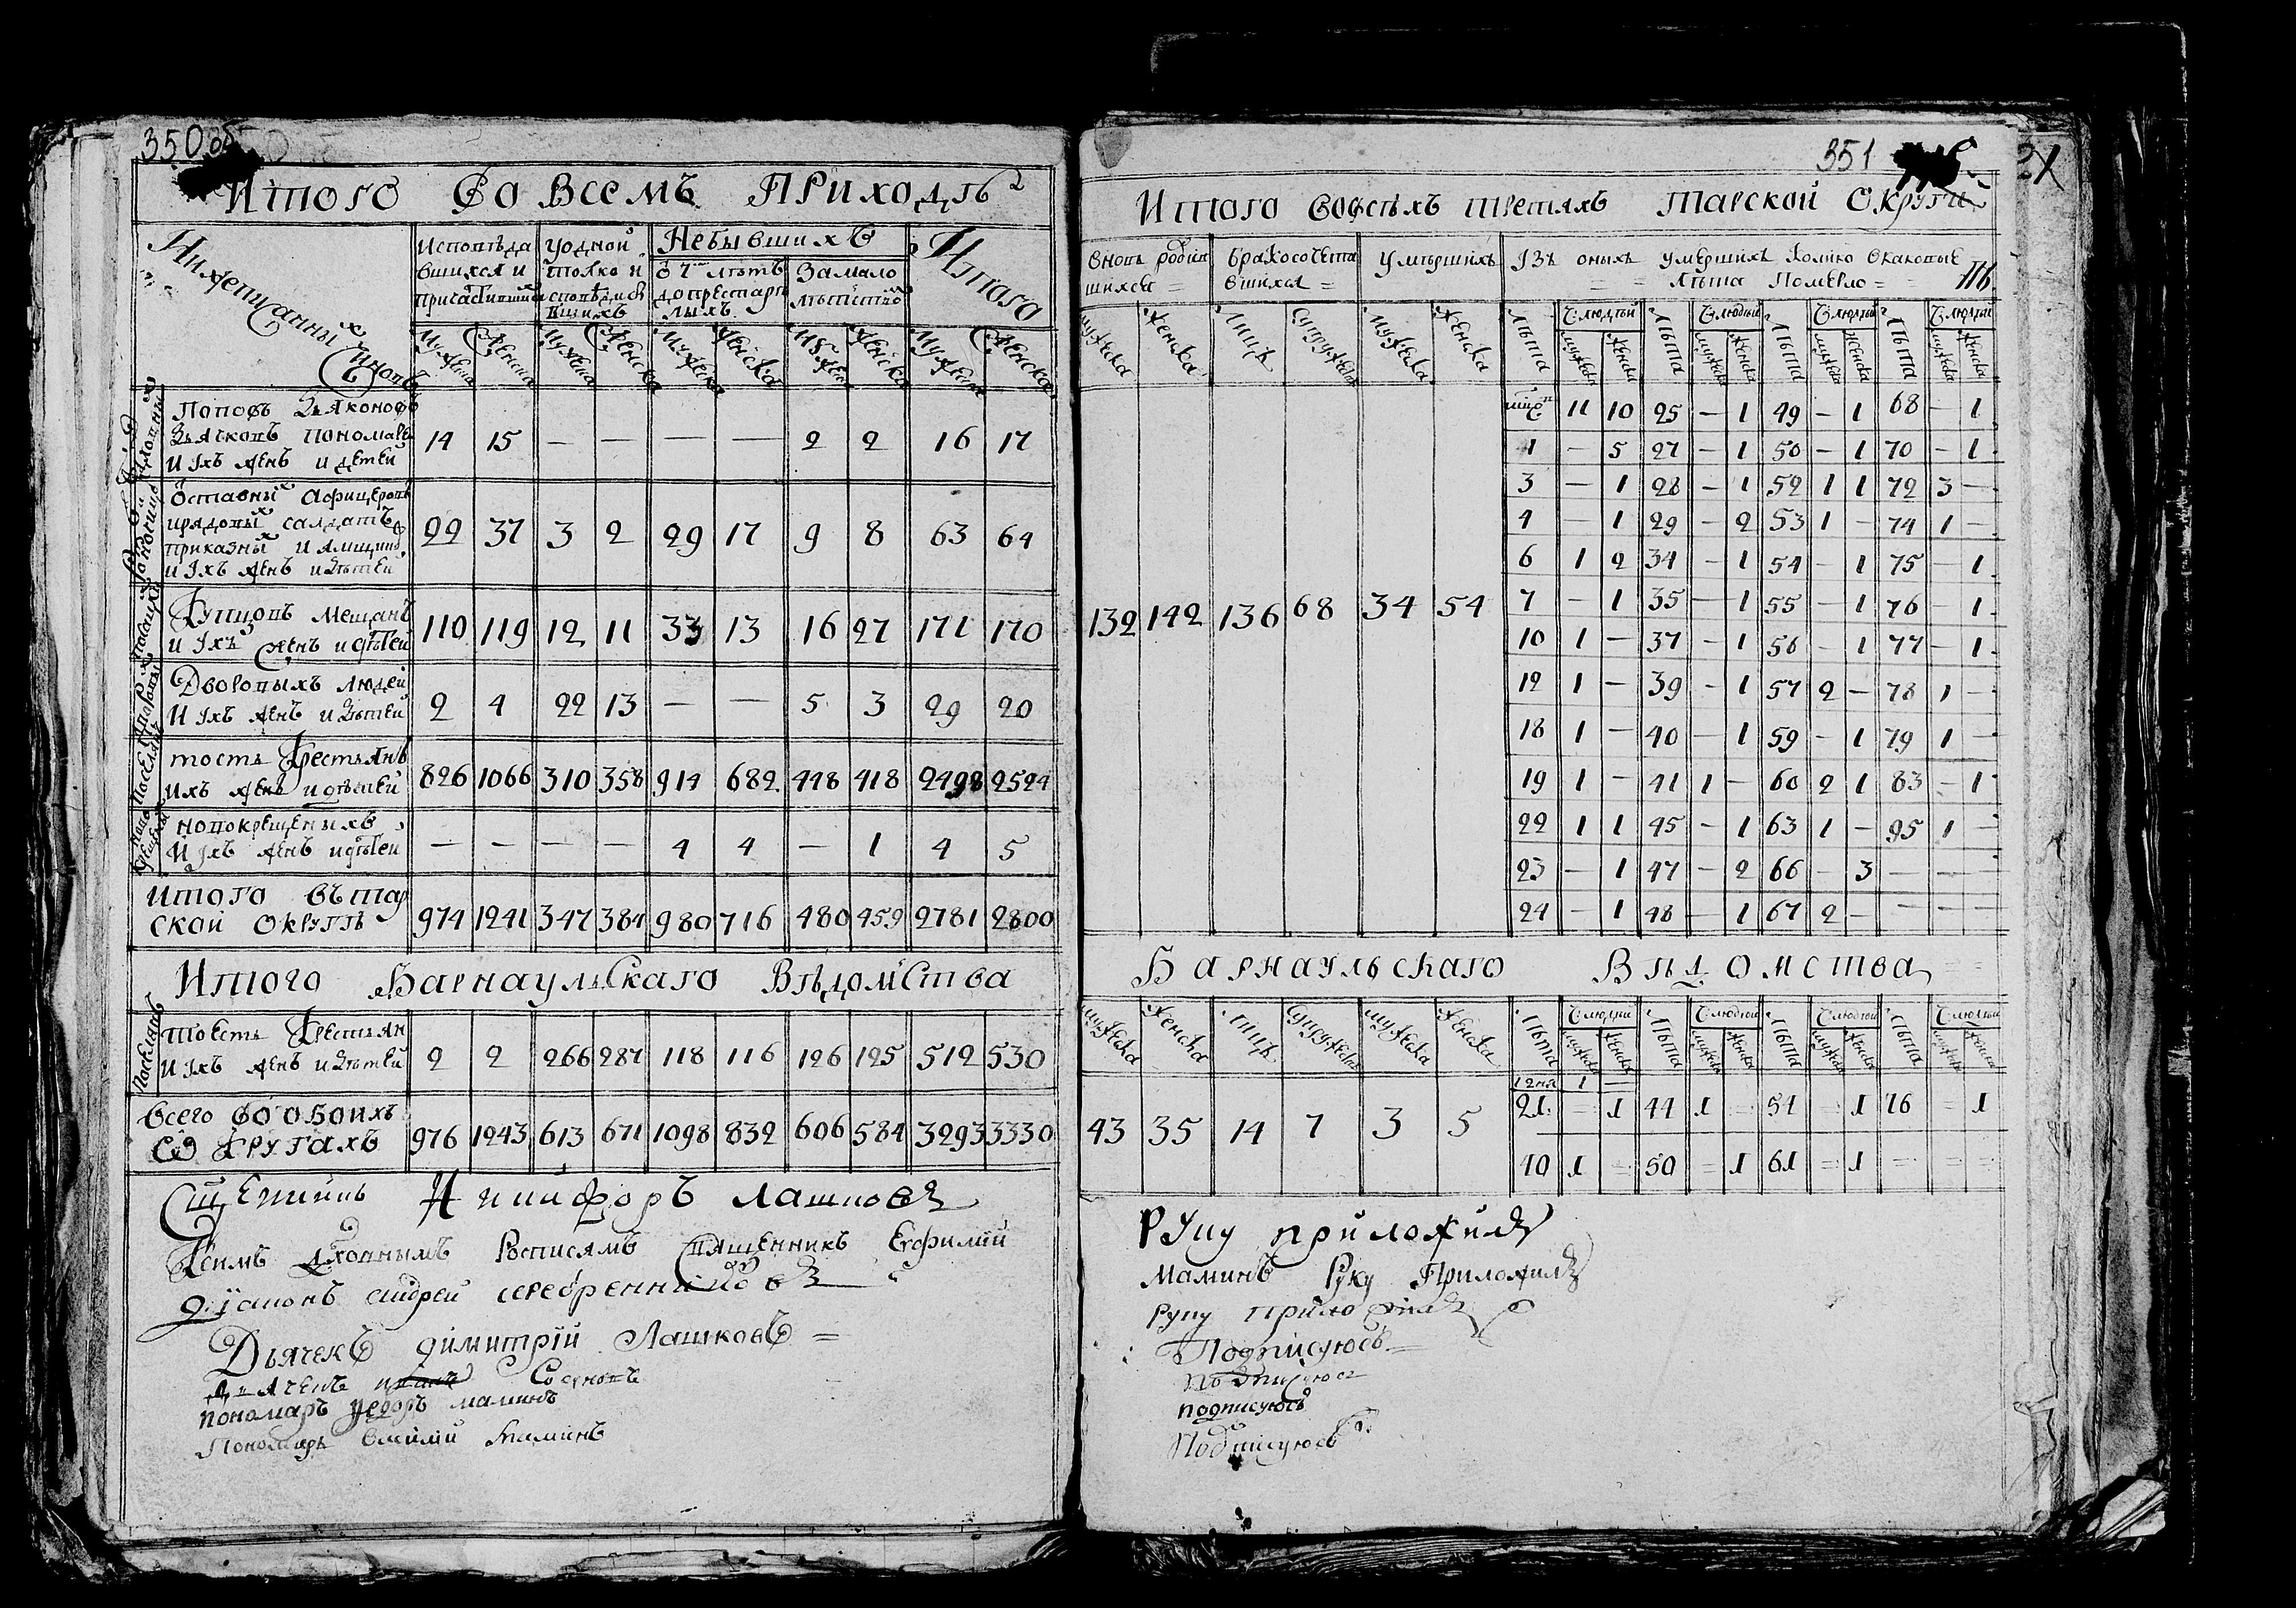 350 об
Итого во всемъ приходѣ
Нижеписанных чиновъ
Исповѣдавшихся и причастившихся
У одной только исповѣди бывшихъ
Небывшихъ
от 7ми лѣтъ до престарѣлыхъ
За малолѣтство
Итого
Мужеска Женска Мужеска Женска Мужеска Женска Мужеска Женска Мужеска Женска
Поповъ Дьяконовъ
Дьячковъ пономарей
и ихъ женъ и детей
14 15 — — — — 2 2 16 17
Отставных афицеровъ
и рядовых салдатъ
приказных и ямщиков
и ихъ женъ и дѣтей
22 37 3 2 29 17 9 8 63 64
Купцовъ Мещанъ
и ихъ женъ и дѣтей
110 119 12 11 33 13 16 27 171 170
Дворовыхъ людей
и ихъ женъ и дѣтей
2 4 22 13 — — 5 3 29 20
тоесть Крестьянъ
ихъ женъ и дѣтей
826 1066 310 358 914 682 448 418 2498 2524
новокрещеныхъ
и ихъ женъ и дѣтей
— — — — 4 4 — 1 4 5
Итого въ тар
ской округѣ
974 1241 347 384 980 716 480 459 2781 2800
Итого Барнаульскаго Вѣдомства
Поселянъ
тоесть Крестьян
и ихъ женъ и дѣтей
2 2 266 287 118 116 126 125 512 530
всего во обоихъ
округахъ
976 1243 613 671 1098 832 606 584 3293 3330
Никифоръ Лашковъ
Ксимъ духовнымъ Росписямъ священникъ Евфимий
Диаконъ андрей серебренниковъ
Дьячекъ димитрій Лашковъ
дьячекъ
пономарь федоръ маминъ
Пономарь василий маминъ
351
Итого вовсѣхъ третяхъ тарской округи
Вновь родившихся
бракосочетавшихся
умершихъ
Изъ оныхъ умершихъ колико и каковые лѣта померло
Мужеска Женска Лицъ Супружествъ Мужеска Женска
Лѣта Числюдей Лѣта Числюдей Лѣта Числюдей Лѣта Числюдей
мужеска женска мужеска женска мужеска женска мужеска женска
132 142 136 68 34 54
11 10 25 — 1 49 — 1 68 — 1
1 — 5 27 — 1 50 — 1 70 — 1
3 — 1 28 — 1 52 1 1 72 3 —
4 — 1 29 — 2 53 1 — 74 1 —
6 1 2 34 — 1 54 — 1 75 — 1
7 — 1 35 — 1 55 — 1 76 — 1
10 1 — 37 — 1 56 — 1 77 — 1
12 1 — 39 — 1 57 2 — 78 1 —
18 1 — 40 — 1 59 — 1 79 1 —
19 1 — 41 1 — 60 2 1 83 — 1
22 1 1 45 — 1 63 1 — 95 1 —
23 — 1 47 — 2 66 — 3 — — —
24 — 1 48 — 1 67 2 — — — —
Барнаульскаго Вѣдомства
Мужеска Женска Лицъ Супружествъ Мужеска Женска
Лѣта Числюдей Лѣта Числюдей Лѣта Числюдей Лѣта Числюдей
мужеска женска мужеска женска мужеска женска мужеска женска
43 35 14 7 3 5
12 1 —
21 = 1 44 1 = 54 = 1 76 = 1
40 1 = 50 = 1 61 = 1 = = =
Руку приложилъ
маминъ Руку Приложилъ
руку приложилъ
Подписуюсь
подписуюсь
подписуюсь
Подписуюсь